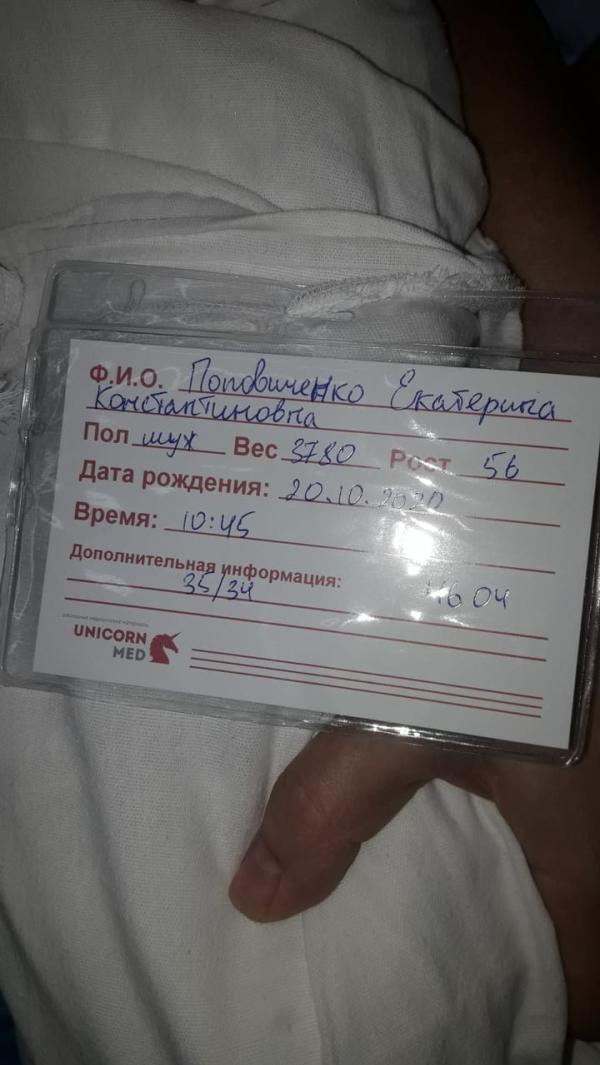 Ф.И.О. Поповиченко Екатерина
Константиновна
Пол муж Вес 3780 Рост 56
Дата рождения: 20.10.2020
Время: 10:45
Дополнительная информация:
35/34 4604
расходные медицинские материалы
UNICORN
MED